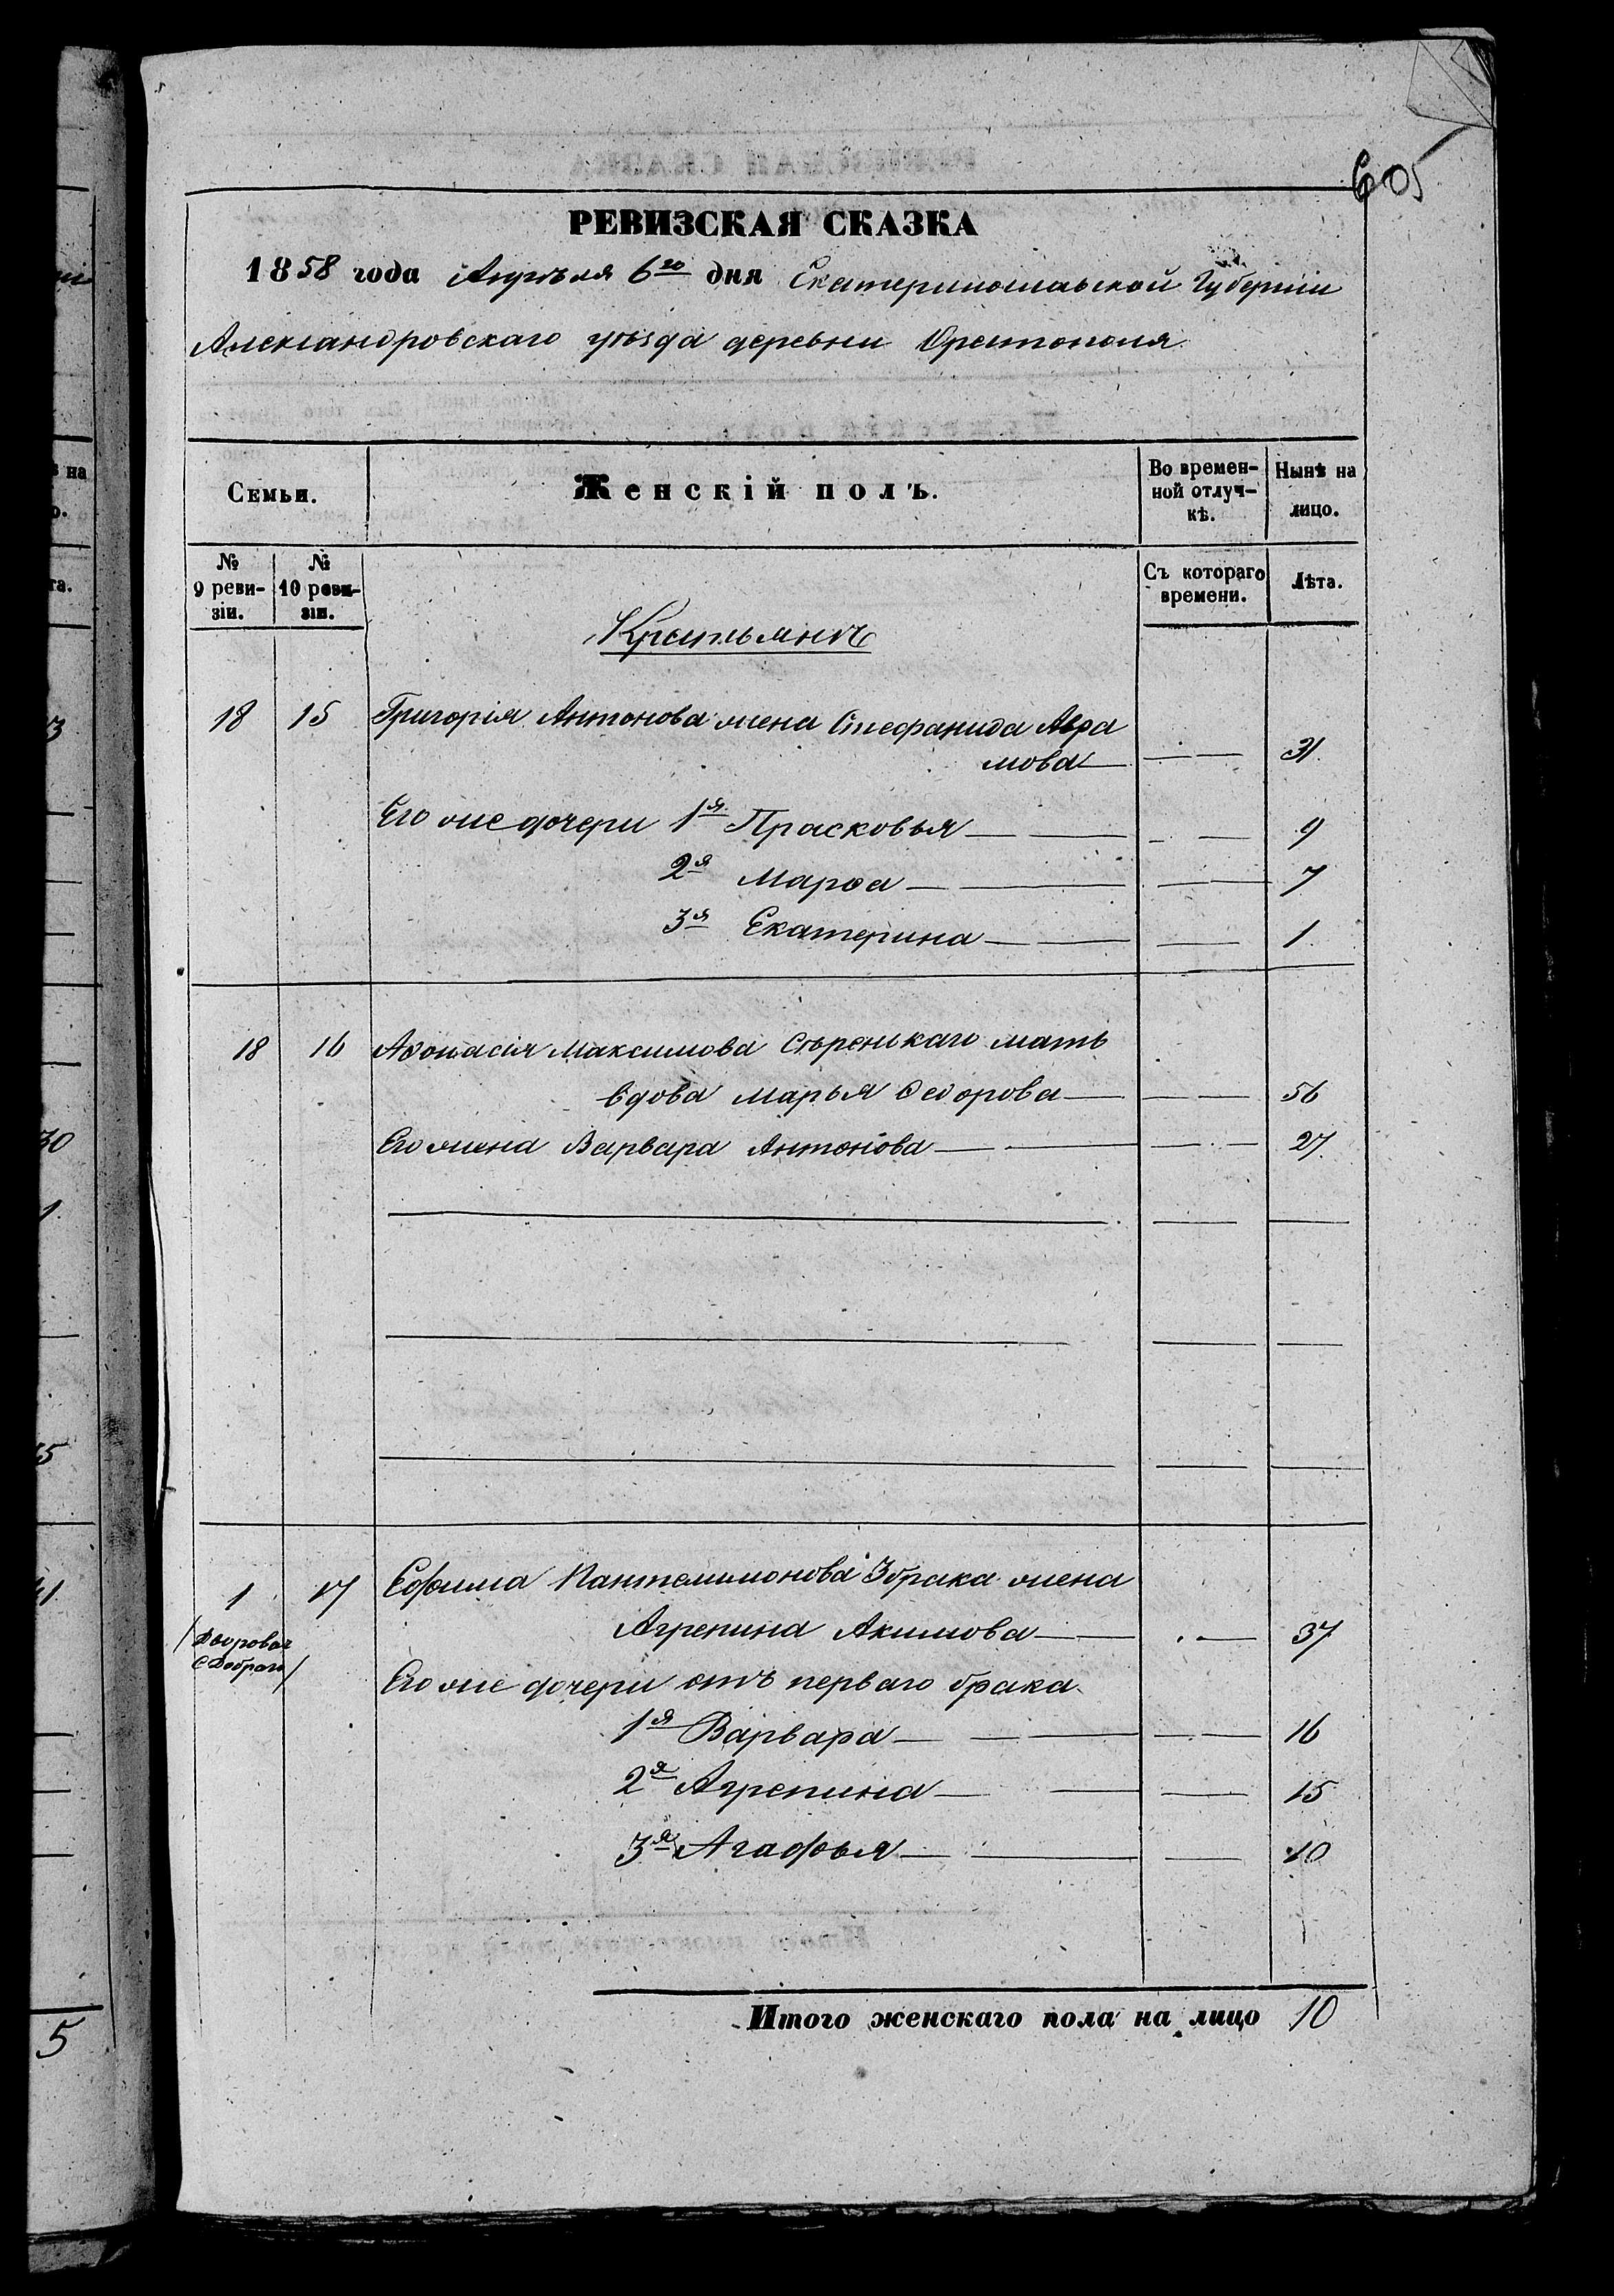 605
РЕВИЗСКАЯ СКАЗКА
1858 года Апрѣля 6го дня Екатеринославской Губерніи
Александровскаго уѣзда деревни Орестополя
Семьи. Женскій полъ. Во времен-ной отлуч-кѣ. Нынѣ на лицо.
№ 9 реви-зіи. № 10 реви-зіи. Съ котораго времени. Лѣта.
Крестьянъ
18 15 Григорія Антонова жена Стефанида Авра
мова 31.
Его же дочери 1я Прасковья 9
2я Марѳа 7
3я Екатерина 1.
18 16 Аѳонасія Максимова Сѣренькаго мать
вдова Марья Ѳедорова 56
Его жена Варвара Антонова 27.
1 17 Ефима Пантелимонова Збрака жена
Агрепина Акимова 37
/Дворовая
Его же дочери отъ перваго брака
1я Варвара 16
2я Агрепина 15
3я Агафья 10
Итого женскаго пола на лицо 10
на
о.
та.
30
1.
5